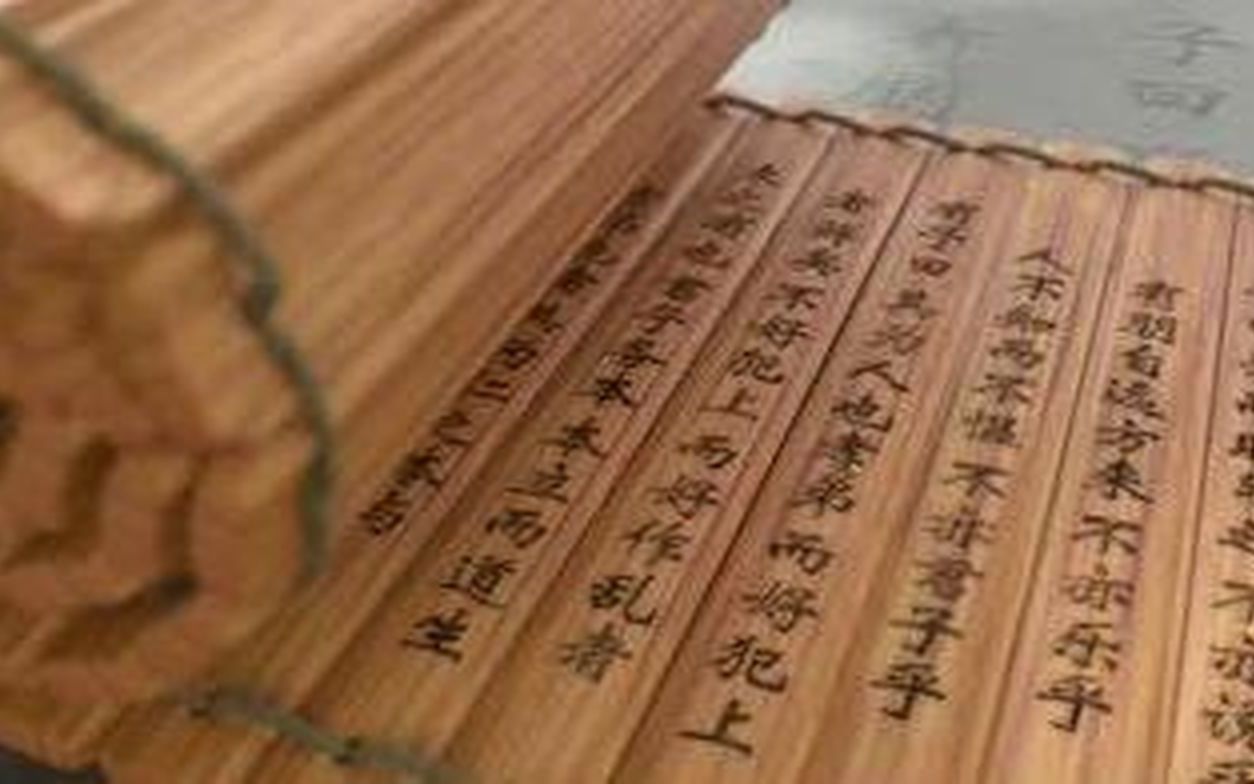 不亦说
有朋自远方来不亦乐乎
人不知而不愠不亦君子乎
有子曰其为人也孝弟而好犯上
者鲜矣不好犯上而好作乱者
未之有也君子务本本立而道生
孝弟也者其为仁之本与